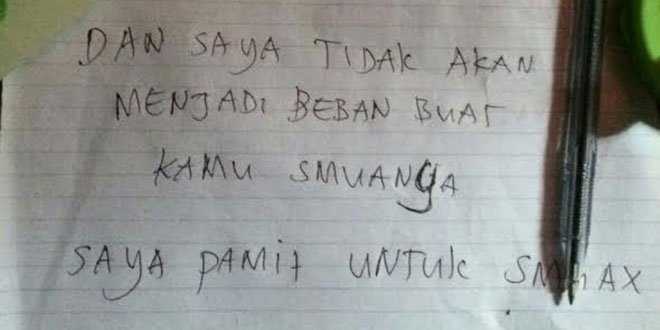 DAN SAYA TIDAK AKAN
MENJADI BEBAN BUAT
KAMU SMUANYA
SAYA PAMIT UNTUK